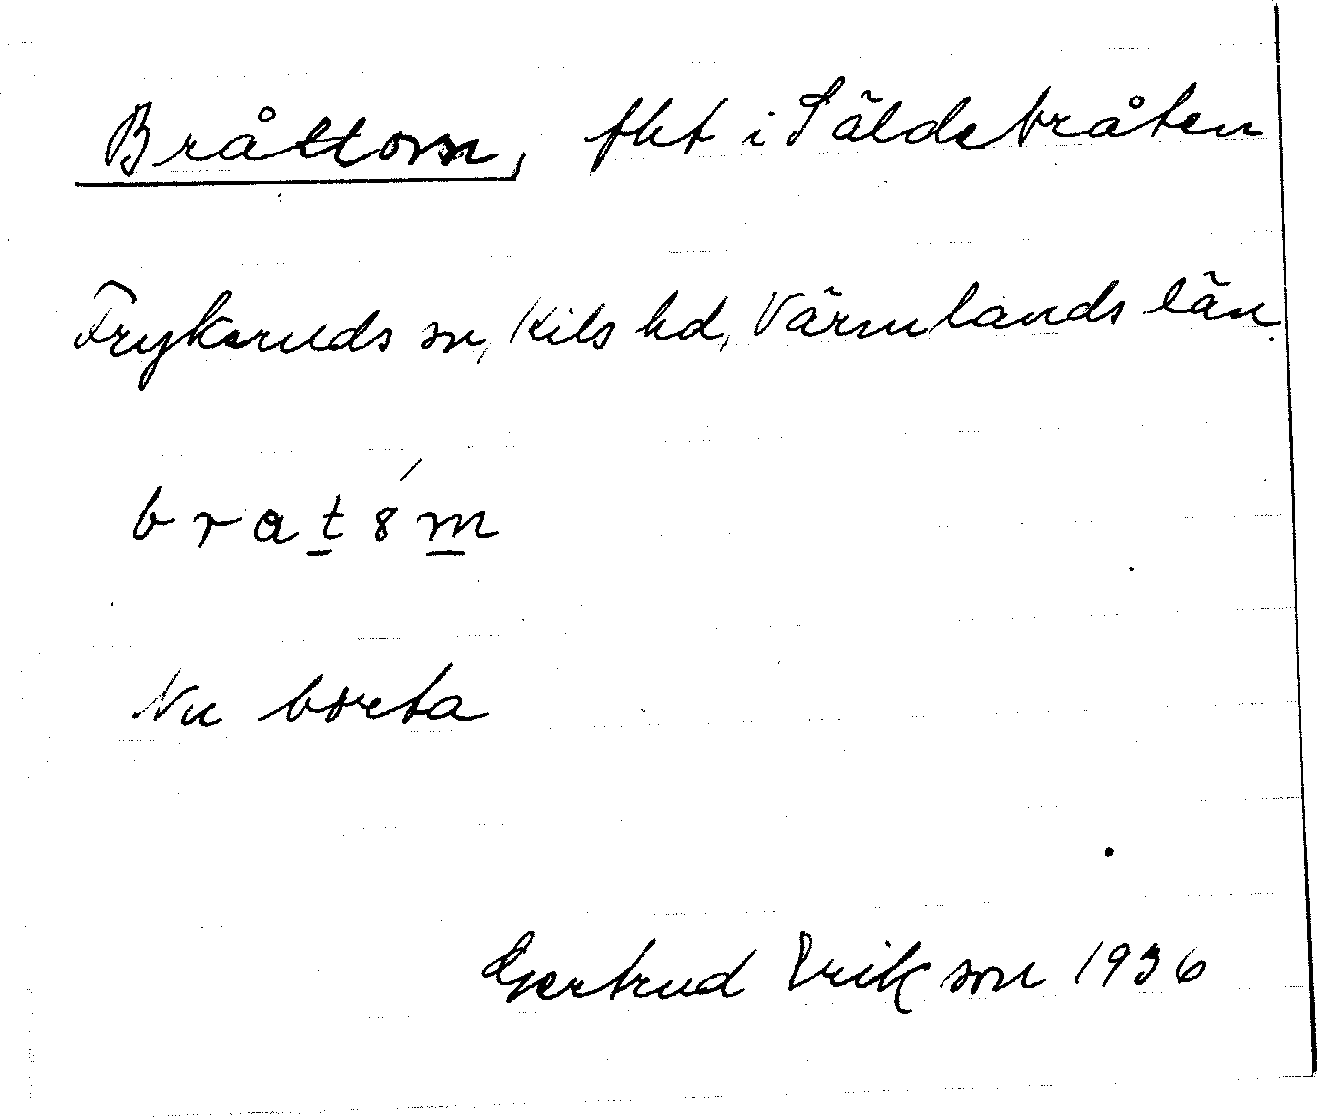 Bråttom, fht i Säldebråten
Frykeruds sn, Kils hd, Värmlands län.
bratém
Nu borta
Gertrud Erikson 1936